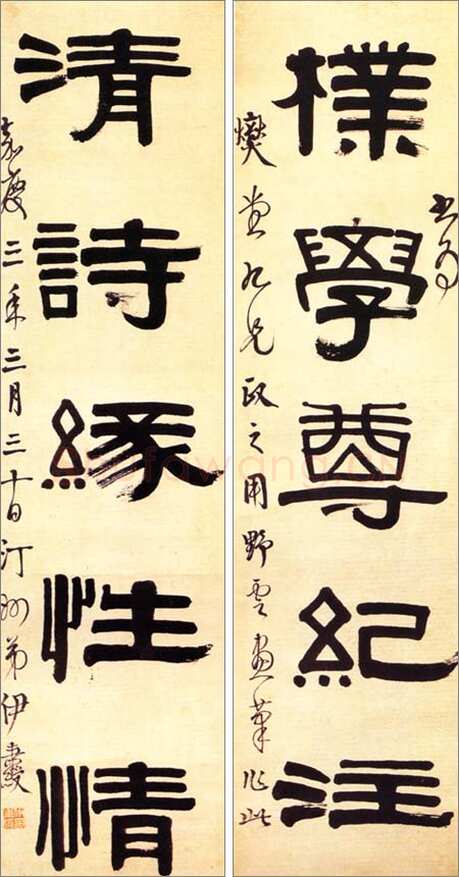 樸學尊紀注
書為
堂九兄政之用野雲畫筆作此
清詩緣性情
嘉慶三年三月三十日汀州弟伊秉綬